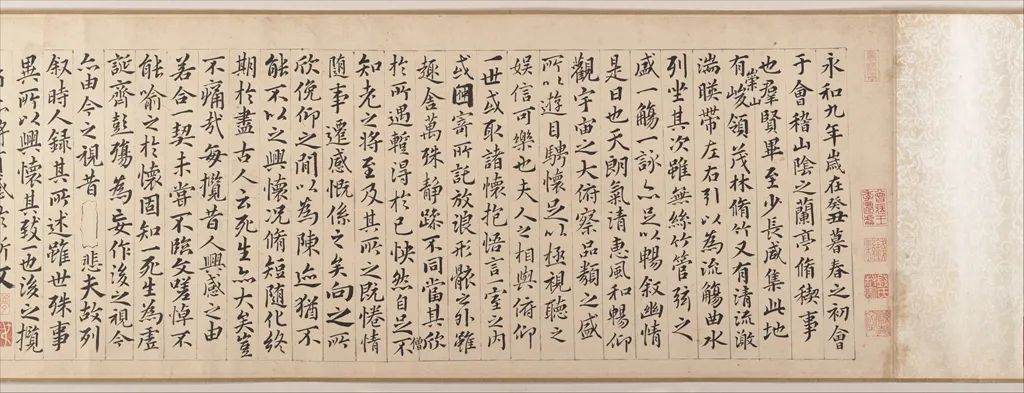 永和九年歲在癸丑暮春之初會
于會稽山陰之蘭亭脩稧事
也羣賢畢至少長咸集此地
有崇山峻領茂林脩竹又有清流激
湍暎帶左右引以為流觴曲水
列坐其次雖無絲竹管弦之
盛一觴一詠亦足以暢叙幽情
是日也天朗氣清惠風和暢仰
觀宇宙之大俯察品類之盛
所以遊目騁懷足以極視聽之
娛信可樂也夫人之相與俯仰
一世或取諸懷抱悟言一室之內
或因寄所託放浪形骸之外雖
趣舍萬殊静躁不同當其欣
於所遇暫得於己怏然自足不
僧
知老之將至及其所之既惓情
隨事遷感慨係之矣向之所
欣俛仰之間以為陳迹猶不
能不以之興懷况脩短隨化終
期於盡古人云死生亦大矣豈
不痛哉每攬昔人興感之由
若合一契未嘗不臨文嗟悼不
能喻之於懷固知一死生為虛
誕齊彭殤為妄作後之視今
亦由今之視昔悲夫故列
叙時人錄其所述雖世殊事
異所以興懷其致一也後之攬
文